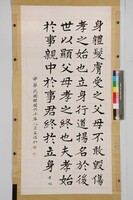 身體髮膚受之父母不敢毀傷
孝之始也立身行道揚名於後
世以顯父母孝之終也夫孝始
於事親中於事君終於立身
中華民國